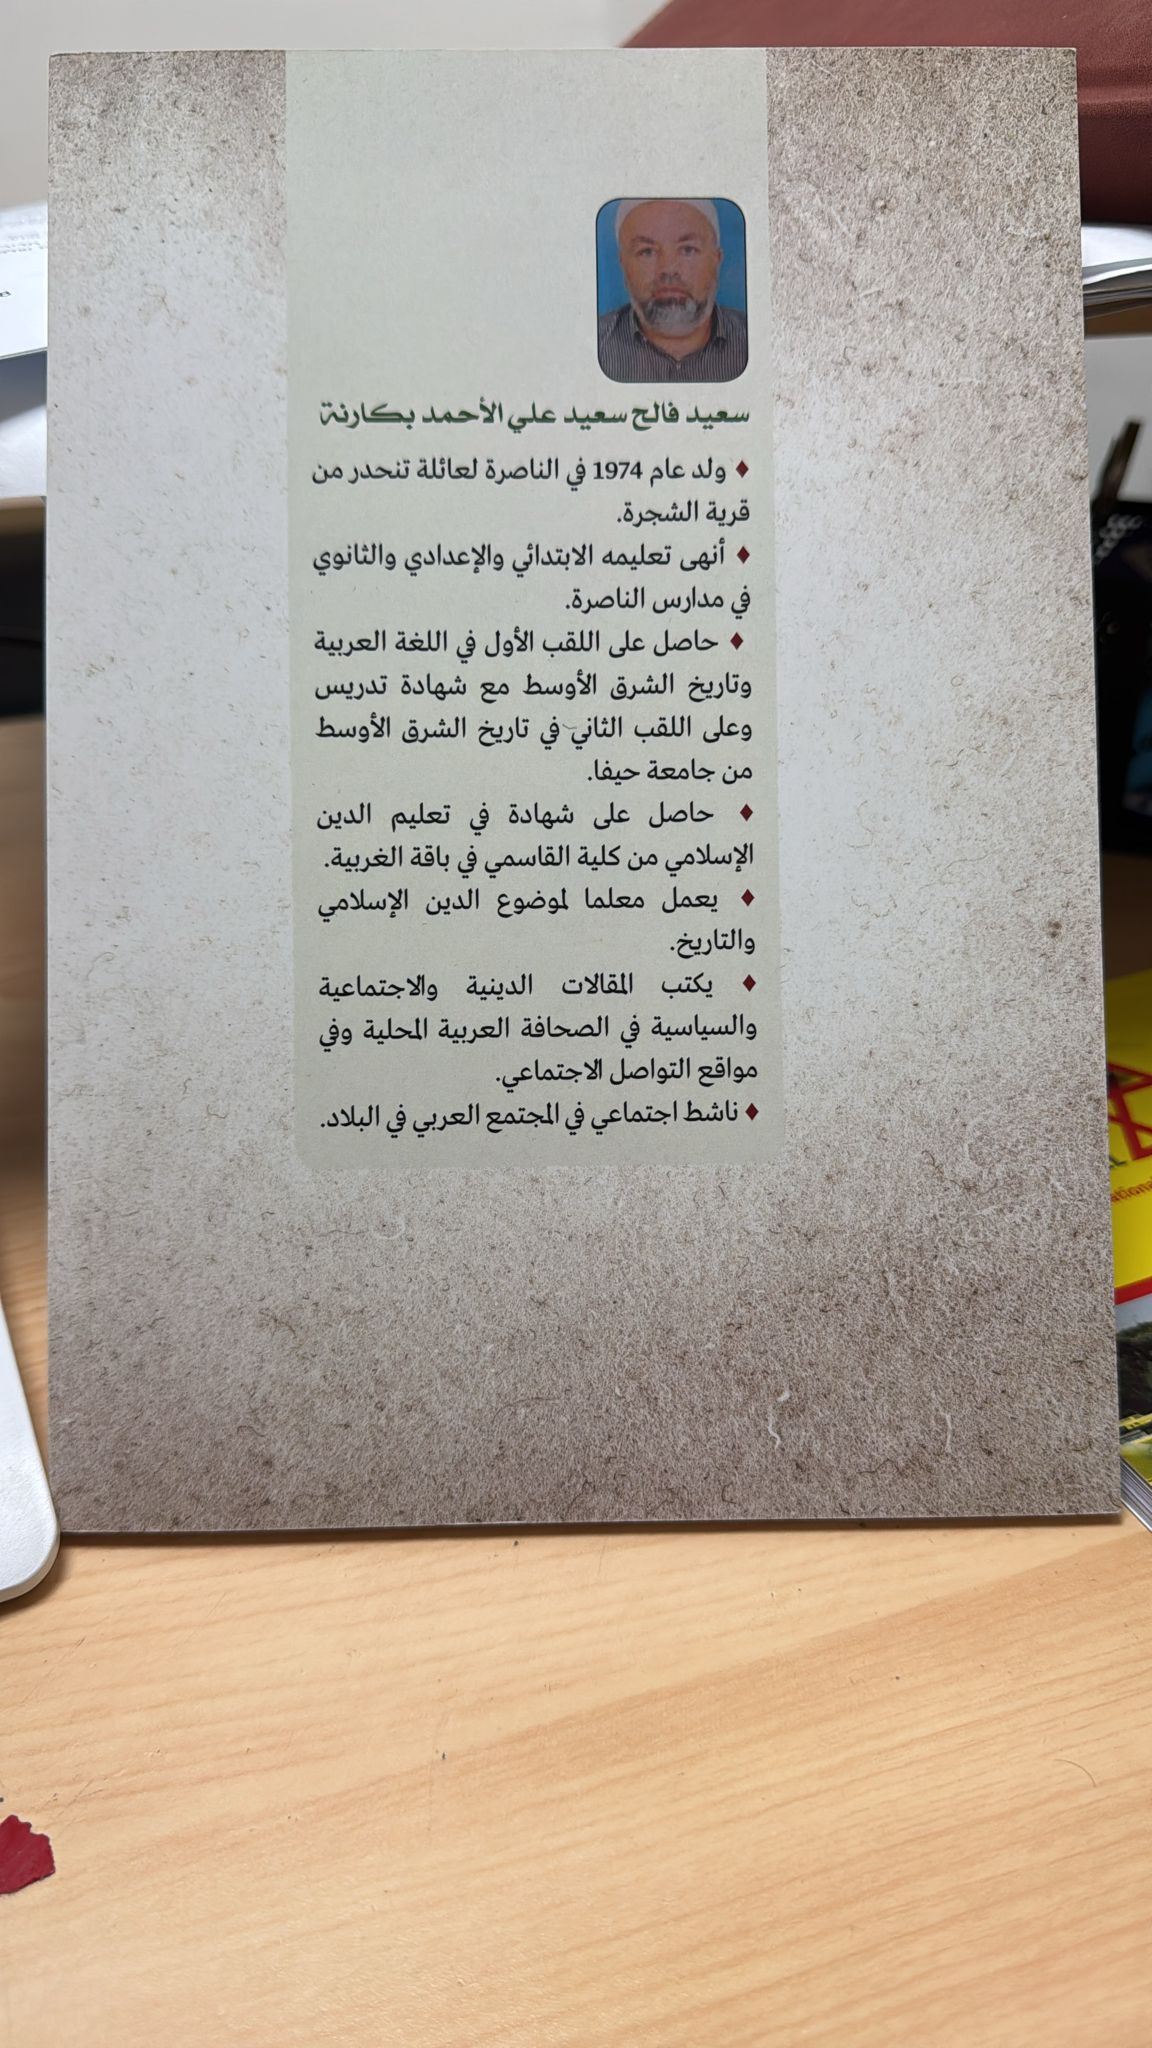 سعيد فالح سعيد علي الأحمد بكارنة
♦ ولد عام 1974 في الناصرة لعائلة تنحدر من
قرية الشجرة.
♦ أنهى تعليمه الابتدائي والإعدادي والثانوي
في مدارس الناصرة.
♦ حاصل على اللقب الأول في اللغة العربية
وتاريخ الشرق الأوسط مع شهادة تدريس
وعلى اللقب الثاني في تاريخ الشرق الأوسط
من جامعة حيفا.
♦ حاصل على شهادة في تعليم الدين
الإسلامي من كلية القاسمي في باقة الغربية.
♦ يعمل معلما لموضوع الدين الإسلامي
والتاريخ.
♦ يكتب المقالات الدينية والاجتماعية
والسياسية في الصحافة العربية المحلية وفي
مواقع التواصل الاجتماعي.
♦ ناشط اجتماعي في المجتمع العربي في البلاد.